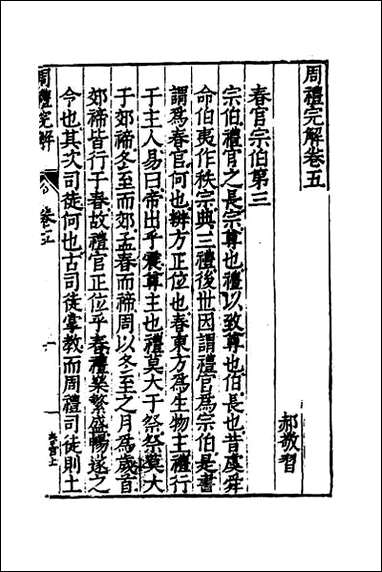 周禮完解卷五
郝敬習
春官宗伯第三
宗伯禮官之長宗尊也禮以致尊也伯長也昔虞舜
命伯夷作秩宗典三禮後世因謂禮官為宗伯是書
謂為春官何也辨方正位也春東方為生物主禮行
于主人易曰帝出乎震尊主也禮莫大于祭祭莫大
于郊禘冬至而郊孟春而禘周以冬至之月為歲首
郊禘皆行于春故禮官正位乎春禮樂繁盛暢遂之
令也其次司徒何也古司徒掌教而周禮司徒則土
周禮完解
卷五
春官上